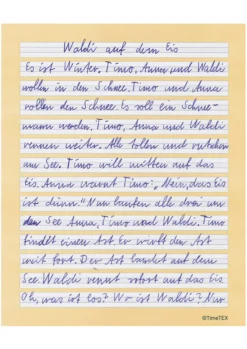 Waldi auf dem Eis
Es ist Winter, Timo, Anna und Waldi
wollen in den Schnee. Timo und Anna
rollen den Schnee. Es soll ein Schnee-
mann werden. Timo, Anna und Waldi
rennen weiter. Alle tollen und rutschen
am See. Timo will mitten auf das
Eis. Anna warnt Timo: „Nein, das Eis
ist dünn." Nun laufen alle drei um
den See Anna, Timo und Waldi. Timo
findet einen Ast. Er wirft den Ast
weit fort. Der Ast landet auf dem
See. Waldi rennt sofort auf das Eis
Oh, was ist los? Wo ist Waldi? Nur
©TimeTEX